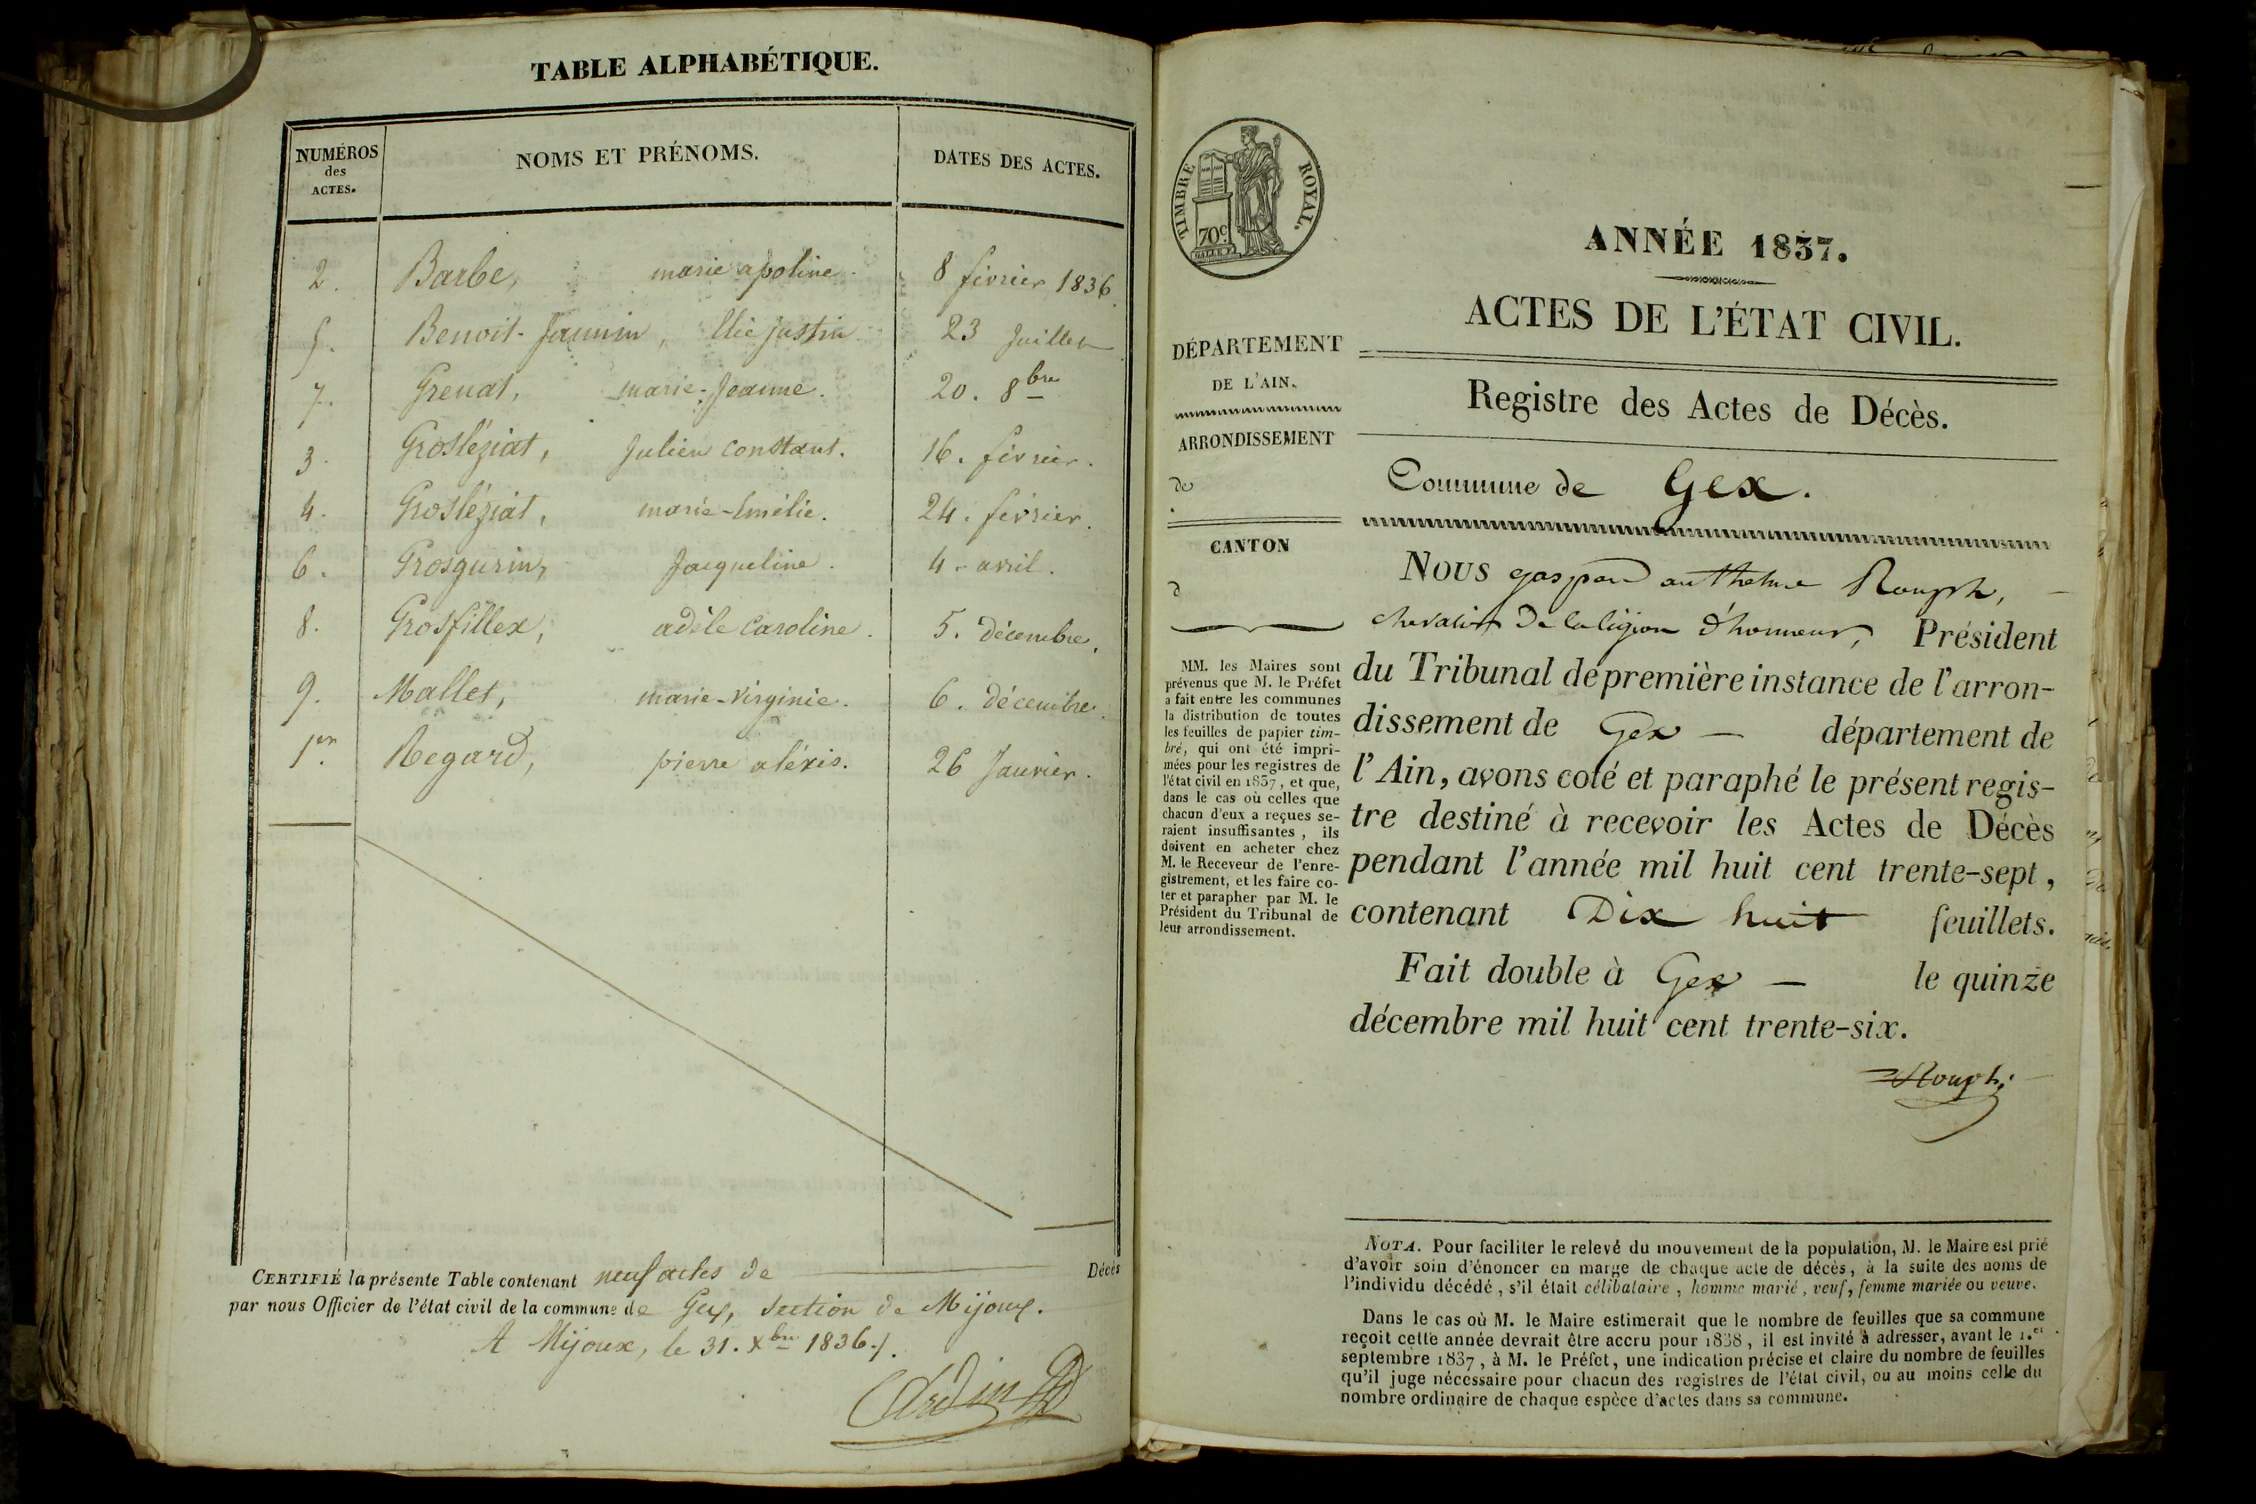 TABLE ALPHABÉTIQUE.
NUMÉROS des ACTES. NOMS ET PRÉNOMS. DATES DES ACTES.
2. Barbe, marie apoline. 8 février 1836
5. Benoit-Jannin, Elie justin 23 Juillet
7. Grenat, marie-Jeanne. 20. 8bre
3. Grosléziat, Julien constant. 16. février.
4. Grosléziat, marie-Emélie. 24. février.
6. Grosgurin, Jacqueline. 4. avril.
8. Grosfillex, adèle Caroline. 5. décembre,
9. Mallet, marie-virginie. 6. décembre.
1er. Regard, pierre aléxis. 26 Janvier.
CERTIFIÉ la présente Table contenant neuf actes de Décès
par nous Officier de l'état civil de la commune de Gex, section de Mijoux.
A Mijoux, le 31. Xbre 1836./.
TIMBRE ROYAL.
70c
DÉPARTEMENT
DE L'AIN.
ARRONDISSEMENT
de
CANTON
d
MM. les Maires sont
prévenus que M. le Préfet
a fait entre les communes
la distribution de toutes
les feuilles de papier tim-
bré, qui ont été impri-
mées pour les registres de
l'état civil en 1837, et que,
dans le cas où celles que
chacun d'eux a reçues se-
raient insuffisantes, ils
doivent en acheter chez
M. le Receveur de l'enre-
gistrement, et les faire co-
ter et parapher par M. le
Président du Tribunal de
leur arrondissement.
ANNÉE 1837.
ACTES DE L'ÉTAT CIVIL.
Registre des Actes de Décès.
Commune de Gex.
NOUS gaspard anthelme Rouph,
chevalier de la légion d'honneur, Président
du Tribunal de première instance de l'arron-
dissement de Gex département de
l'Ain, avons coté et paraphé le présent regis-
tre destiné à recevoir les Actes de Décès
pendant l'année mil huit cent trente-sept,
contenant Dix huit feuillets.
Fait double à Gex le quinze
décembre mil huit cent trente-six.
Rouph
NOTA. Pour faciliter le relevé du mouvement de la population, M. le Maire est prié
d'avoir soin d'énoncer en marge de chaque acte de décès, à la suite des noms de
l'individu décédé, s'il était célibataire, homme marié, veuf, femme mariée ou veuve.
Dans le cas où M. le Maire estimerait que le nombre de feuilles que sa commune
reçoit cette année devrait être accru pour 1838, il est invité à adresser, avant le 1.er
septembre 1837, à M. le Préfet, une indication précise et claire du nombre de feuilles
qu'il juge nécessaire pour chacun des registres de l'état civil, ou au moins celle du
nombre ordinaire de chaque espèce d'actes dans sa commune.